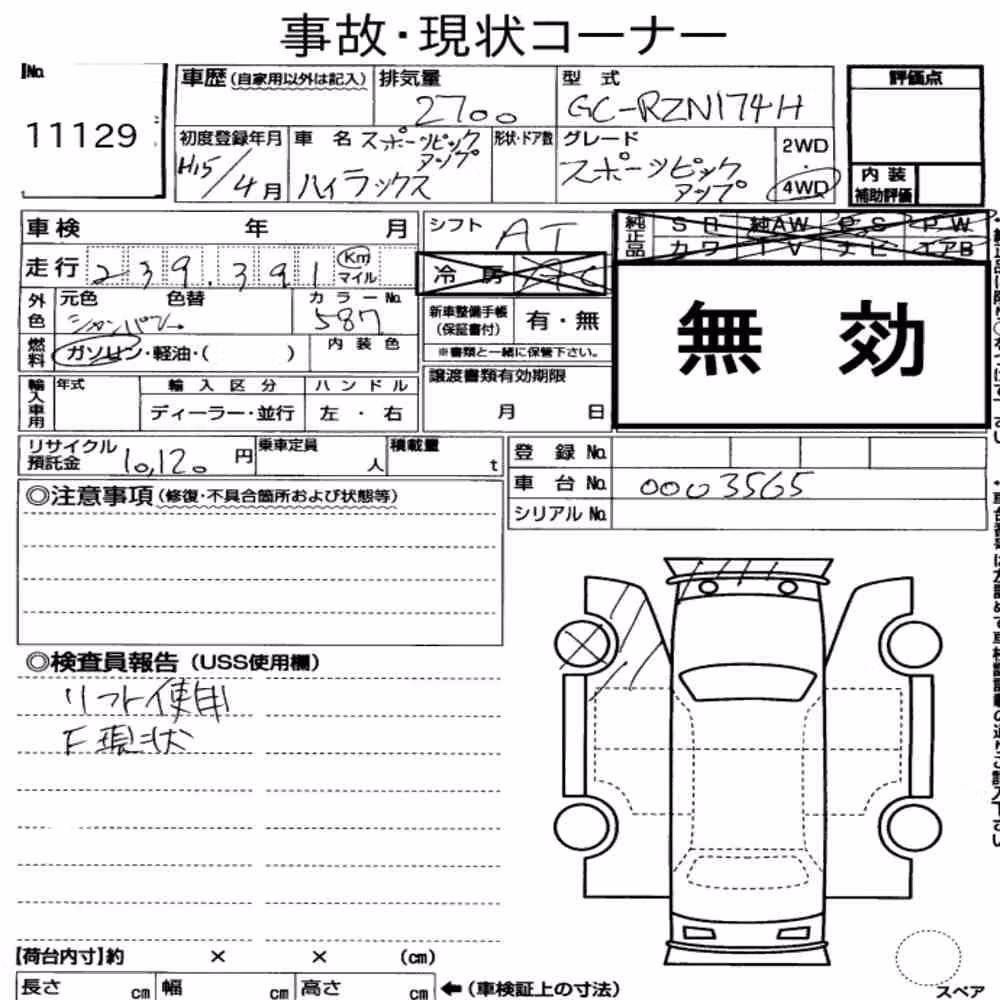 事故・現状コーナー
No. 11129
車歴 (自家用以外は記入)
排気量 2700
型式 GC-RZN174H
評価点
初度登録年月 H15/4月
車名 スポーツピックアップ ハイラックス
形状・ドア数
グレード スポーツピックアップ
2WD ・ 4WD
内装補助評価
車検 年 月
シフト AT
純正品 SR 純AW PS PW
カワ TV ナビ エアB
走行 239,391 Km マイル
冷房 AC
無効
外色 元色 色替 シャンパン
カラーNo. 587
新車整備手帳 (保証書付) 有・無
※書類と一緒に保管下さい。
燃料 ガソリン・軽油・( )
内装色
譲渡書類有効期限 月 日
輸入車用 年式
輸入区分 ディーラー・並行
ハンドル 左・右
リサイクル預託金 10,120 円
乗車定員 人
積載量 t
登録No.
車台No. 0003565
シリアルNo.
◎注意事項 (修復・不具合箇所および状態等)
◎検査員報告 (USS使用欄)
リフト使用
F現状
【荷台内寸】約 × × (cm)
長さ cm 幅 cm 高さ cm ←(車検証上の寸法)
スペア